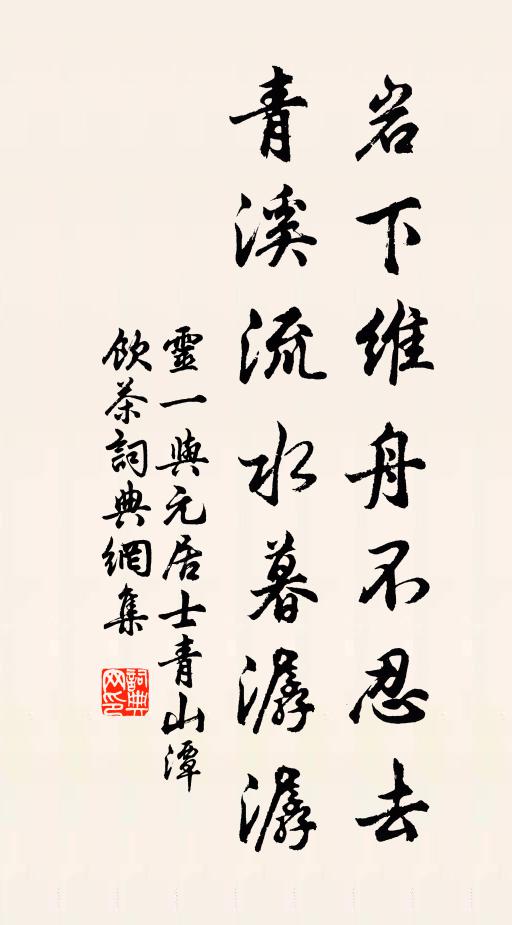 岩下維舟不忍去
青溪流水暮潺潺
靈一與元居士青山潭
飲茶詞典網集
詞典网印